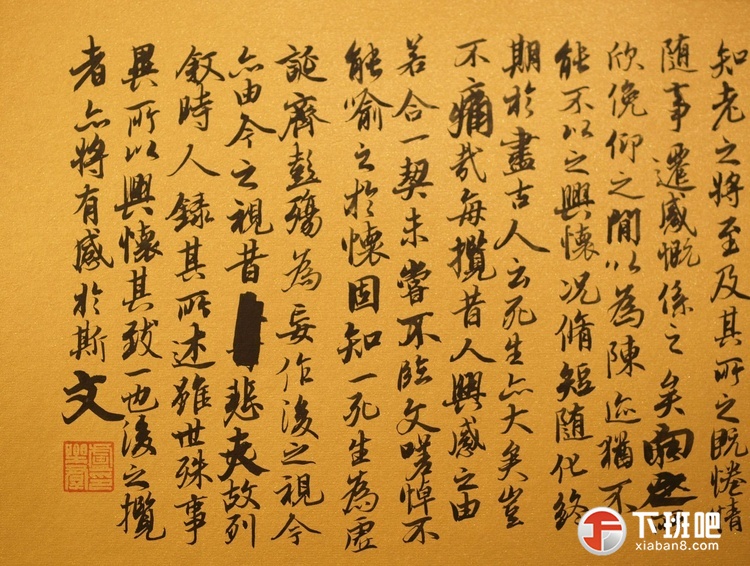 知老之將至及其所之既惓情
隨事遷感慨係之矣向之所
欣俛仰之閒以為陳迹猶不
能不以之興懷況脩短隨化終
期於盡古人云死生亦大矣豈
不痛哉每攬昔人興感之由
若合一契未嘗不臨文嗟悼不
能喻之於懷固知一死生為虛
誕齊彭殤為妄作後之視今
亦由今之視昔悲夫故列
敘時人錄其所述雖世殊事
異所以興懷其致一也後之攬
者亦將有感於斯文
下班吧
xiaban8.com